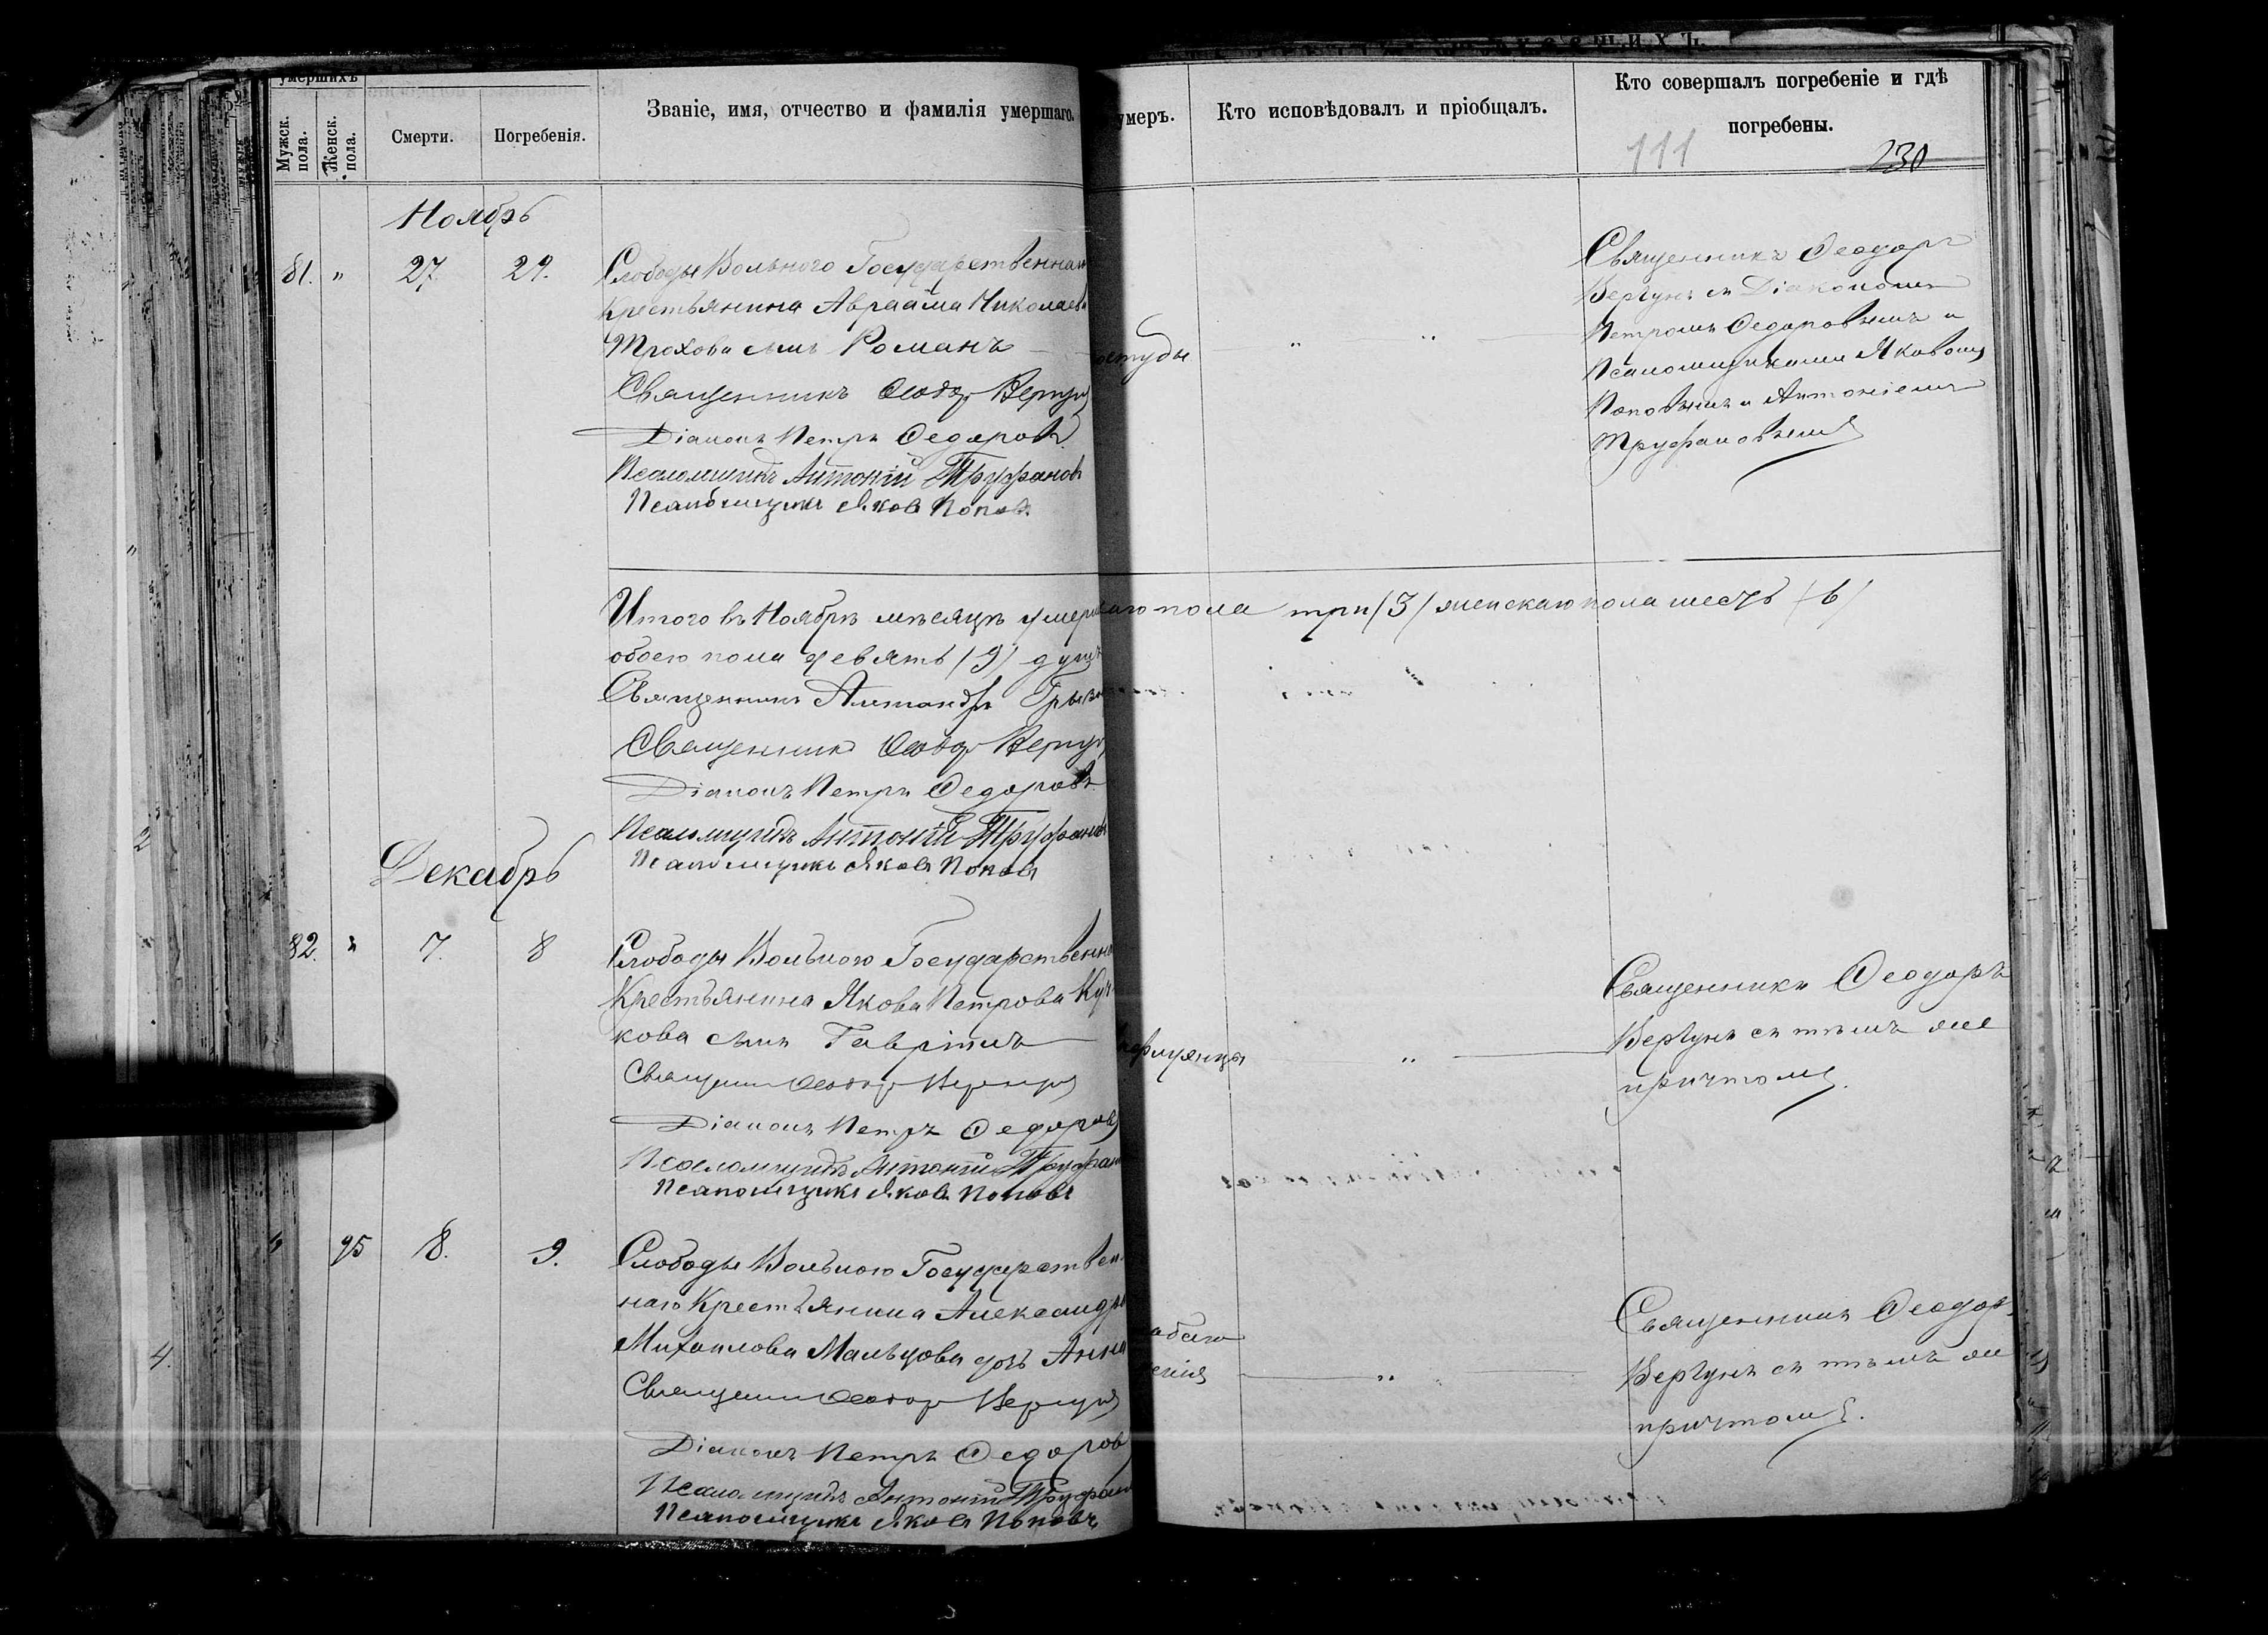 умершихъ
Мужск. пола.
Женск. пола.
Смерти.
Погребенія.
Званіе, имя, отчество и фамилія умершаго.
умеръ.
Кто исповѣдовалъ и пріобщалъ.
Кто совершалъ погребеніе и гдѣ
погребены.
111
230
Ноябрь
81. " 27. 29.
Слободы Вольного Государственнаго
Крестьянина Авраама Николаева
Трохова сынъ Романъ
Священникъ Феодоръ Вергунъ
Діаконъ Петръ Федоровъ
Псаломщикъ Антоній Труфановъ
Псаломщикъ Яковъ Поповъ
остуды
" "
Священникъ Феодоръ
Вергунъ съ Діакономъ
Петромъ Федоровымъ и
Псаломщиками Яковомъ
Поповымъ и Антоніемъ
Труфановымъ
Итого въ Ноябрѣ мѣсяцѣ умер каго пола три (3) женскаго пола шесть (6)
обоего пола девять (9) душъ
Священникъ Александръ
Священникъ Феодоръ Вергунъ
Діаконъ Петръ Федоровъ
Псаломщикъ Антоній Труфановъ
Псаломщикъ Яковъ Поповъ
Декабрь
82. " 7. 8
Слободы Вольного Государственна
Крестьянина Якова Петрова Куч
кова сынъ Гавріилъ
Священникъ Феодоръ Вергунъ
Діаконъ Петръ Федоровъ
Псаломщикъ Антоній Труфан
Псаломщикъ Яковъ Поповъ
"
Священникъ Феодоръ
Вергунъ съ тѣмъ же
причтомъ.
" 95 8. 9.
Слободы Вольного Государствен-
наго Крестьянина Александра
Михаилова Мальцова дочь Анна
Священникъ Феодоръ Вергунъ
Діаконъ Петръ Федоровъ
Псаломщикъ Антоній Труфан
Псаломщикъ Яковъ Поповъ
абаго
енія
"
Священникъ Феодоръ
Вергунъ съ тѣмъ же
причтомъ.